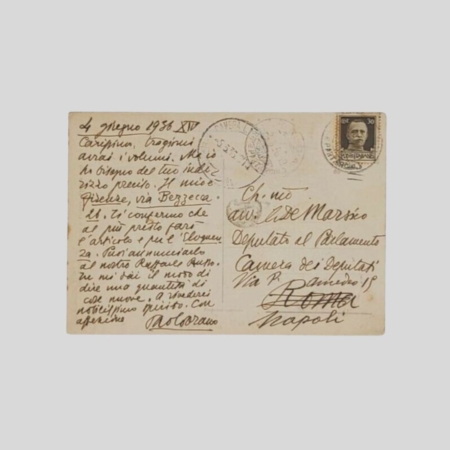 4 giugno 1936 XIV
Carissimo,
avrai i volumi. Ma io
ho bisogno del tuo indi-
rizzo preciso. Il mio è
Firenze, via Bezzecca
11. Ti confermo che
al più presto farò
l'articolo per l'Eloquen
za. Puoi annunciarlo
al nostro Raffaele
Tu mi dai il modo di
dire una quantità di
cose nuove. A
Con
affezione Paolo Orano
Ch. mo
avv. De Marsico
Deputato al Parlamento
Camera dei Deputati
Via 19
Roma
Napoli